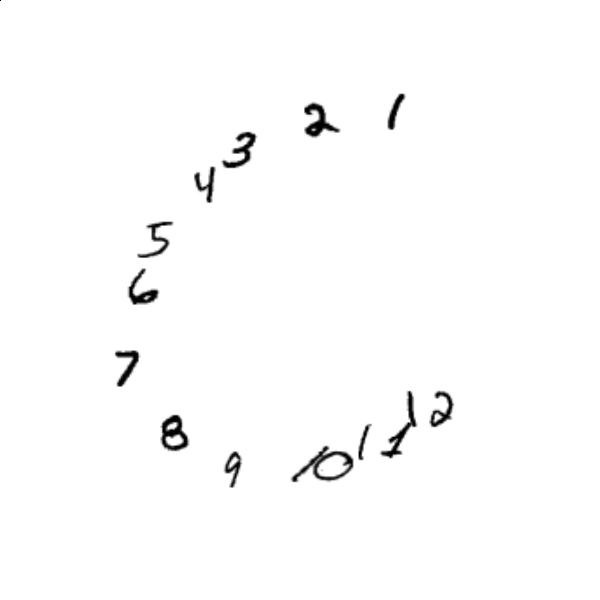 1
2
3
4
5
6
7
8
9
10
11
12